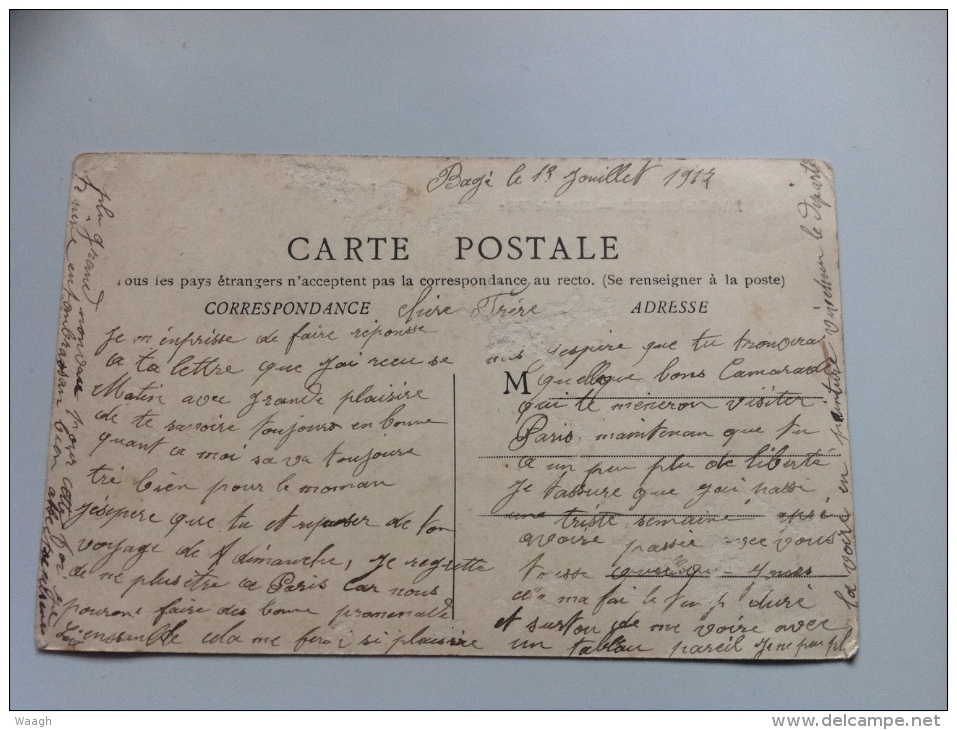 Bagé le 18 Jouillet 1912
CARTE POSTALE
Tous les pays étrangers n'acceptent pas la correspondance au recto. (Se renseigner à la poste)
CORRESPONDANCE
Frére
ADRESSE
Je m'enprisse de faire réponsse
a ta lettre que j'ai recu se
Matin avec grande plaisire
de te savoire toujours en bonne
quant a moi sa va toujoure
tré bien pour le moman
J'ésepere que tu et repauser de ton
voyage de dimanche, Je regrette
de ne plus être a Paris car nous
pourons faire des bonne promenade
enssanble cela me ferai si plaisire
j'espire que tu trouvera
M
quellque bons Camarade
qui te méneron visiter
Paris, maintenan que tu
a un peu plu de liberté
Je t'assure que j'ai passé
une triste semaine apré
avoire passée avec vous
tousse quelque joures
ma fai le temp duré
et surtou de me voire avec
un tablau pareil Je ne peu pl
la voire en peinture vivement le départ
plu grand nouveau pour cette foi
bien